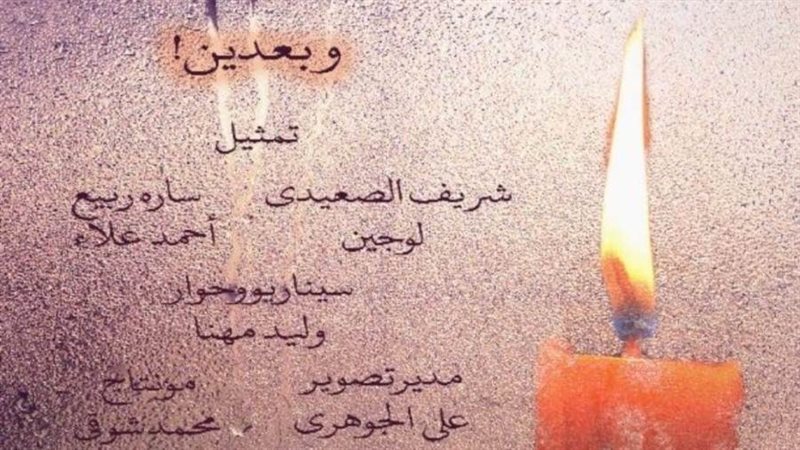 وبعدين!
تمثيل
شريف الصعيدى ساره ربيع
لوجين أحمد علاء
سيناريو وحوار
وليد مهنا
مدير تصوير مونتاج
على الجوهرى محمد شوقى